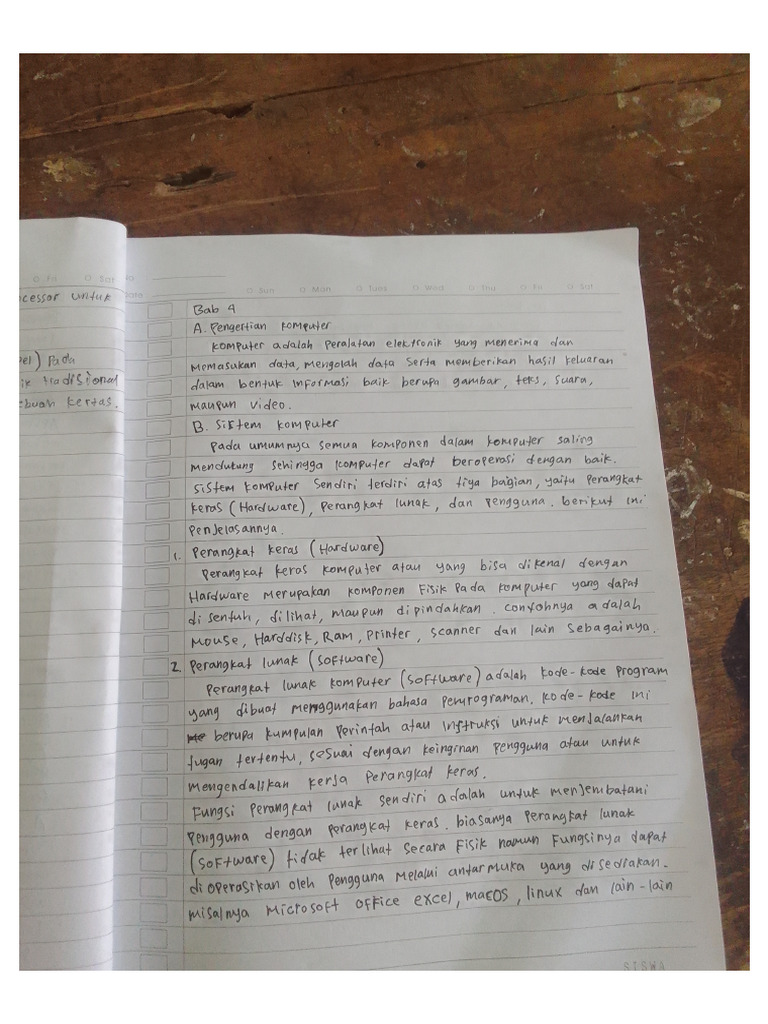 Fri Sat
cessor untuk
el) Pada
ik tradisional
buah kertas.
Sun Mon Tues Wed Thu Fri Sat
Bab 4
A. Pengertian Komputer
Komputer adalah Peralatan elektronik yang menerima dan
Memasukan data, Mengolah data Serta memberikan hasil keluaran
dalam bentuk informasi baik berupa gambar, teks, suara,
maupun video.
B. Sistem Komputer
Pada umumnya semua komponen dalam komputer saling
mendukung sehingga komputer dapat beroperasi dengan baik.
Sistem Komputer Sendiri terdiri atas tiga bagian, yaitu Perangkat
keras (Hardware), Perangkat lunak, dan Pengguna. berikut ini
Penjelasannya.
1. Perangkat keras (Hardware)
Perangkat keras komputer atau yang bisa dikenal dengan
Hardware merupakan komponen Fisik Pada komputer yang dapat
di sentuh, di lihat, maupun di pindahkan. contohnya adalah
Mouse, Harddisk, Ram, Printer, scanner dan lain sebagainya.
2. Perangkat lunak (Software)
Perangkat lunak komputer (Software) adalah kode-kode Program
yang dibuat menggunakan bahasa Pemrograman. Kode-kode ini
berupa kumpulan Perintah atau Instruksi untuk menjalankan
tugan tertentu, sesuai dengan keinginan Pengguna atau untuk
mengendalikan kerja Perangkat keras.
Fungsi Perangkat lunak sendiri adalah untuk menjembatani
Pengguna dengan Perangkat keras. biasanya Perangkat lunak
(Software) tidak terlihat Secara Fisik namun Fungsinya dapat
di operasikan oleh Pengguna Melalui antarmuka yang di sediakan.
misalnya Microsoft Office excel, macOS, linux dan lain-lain
SISWA